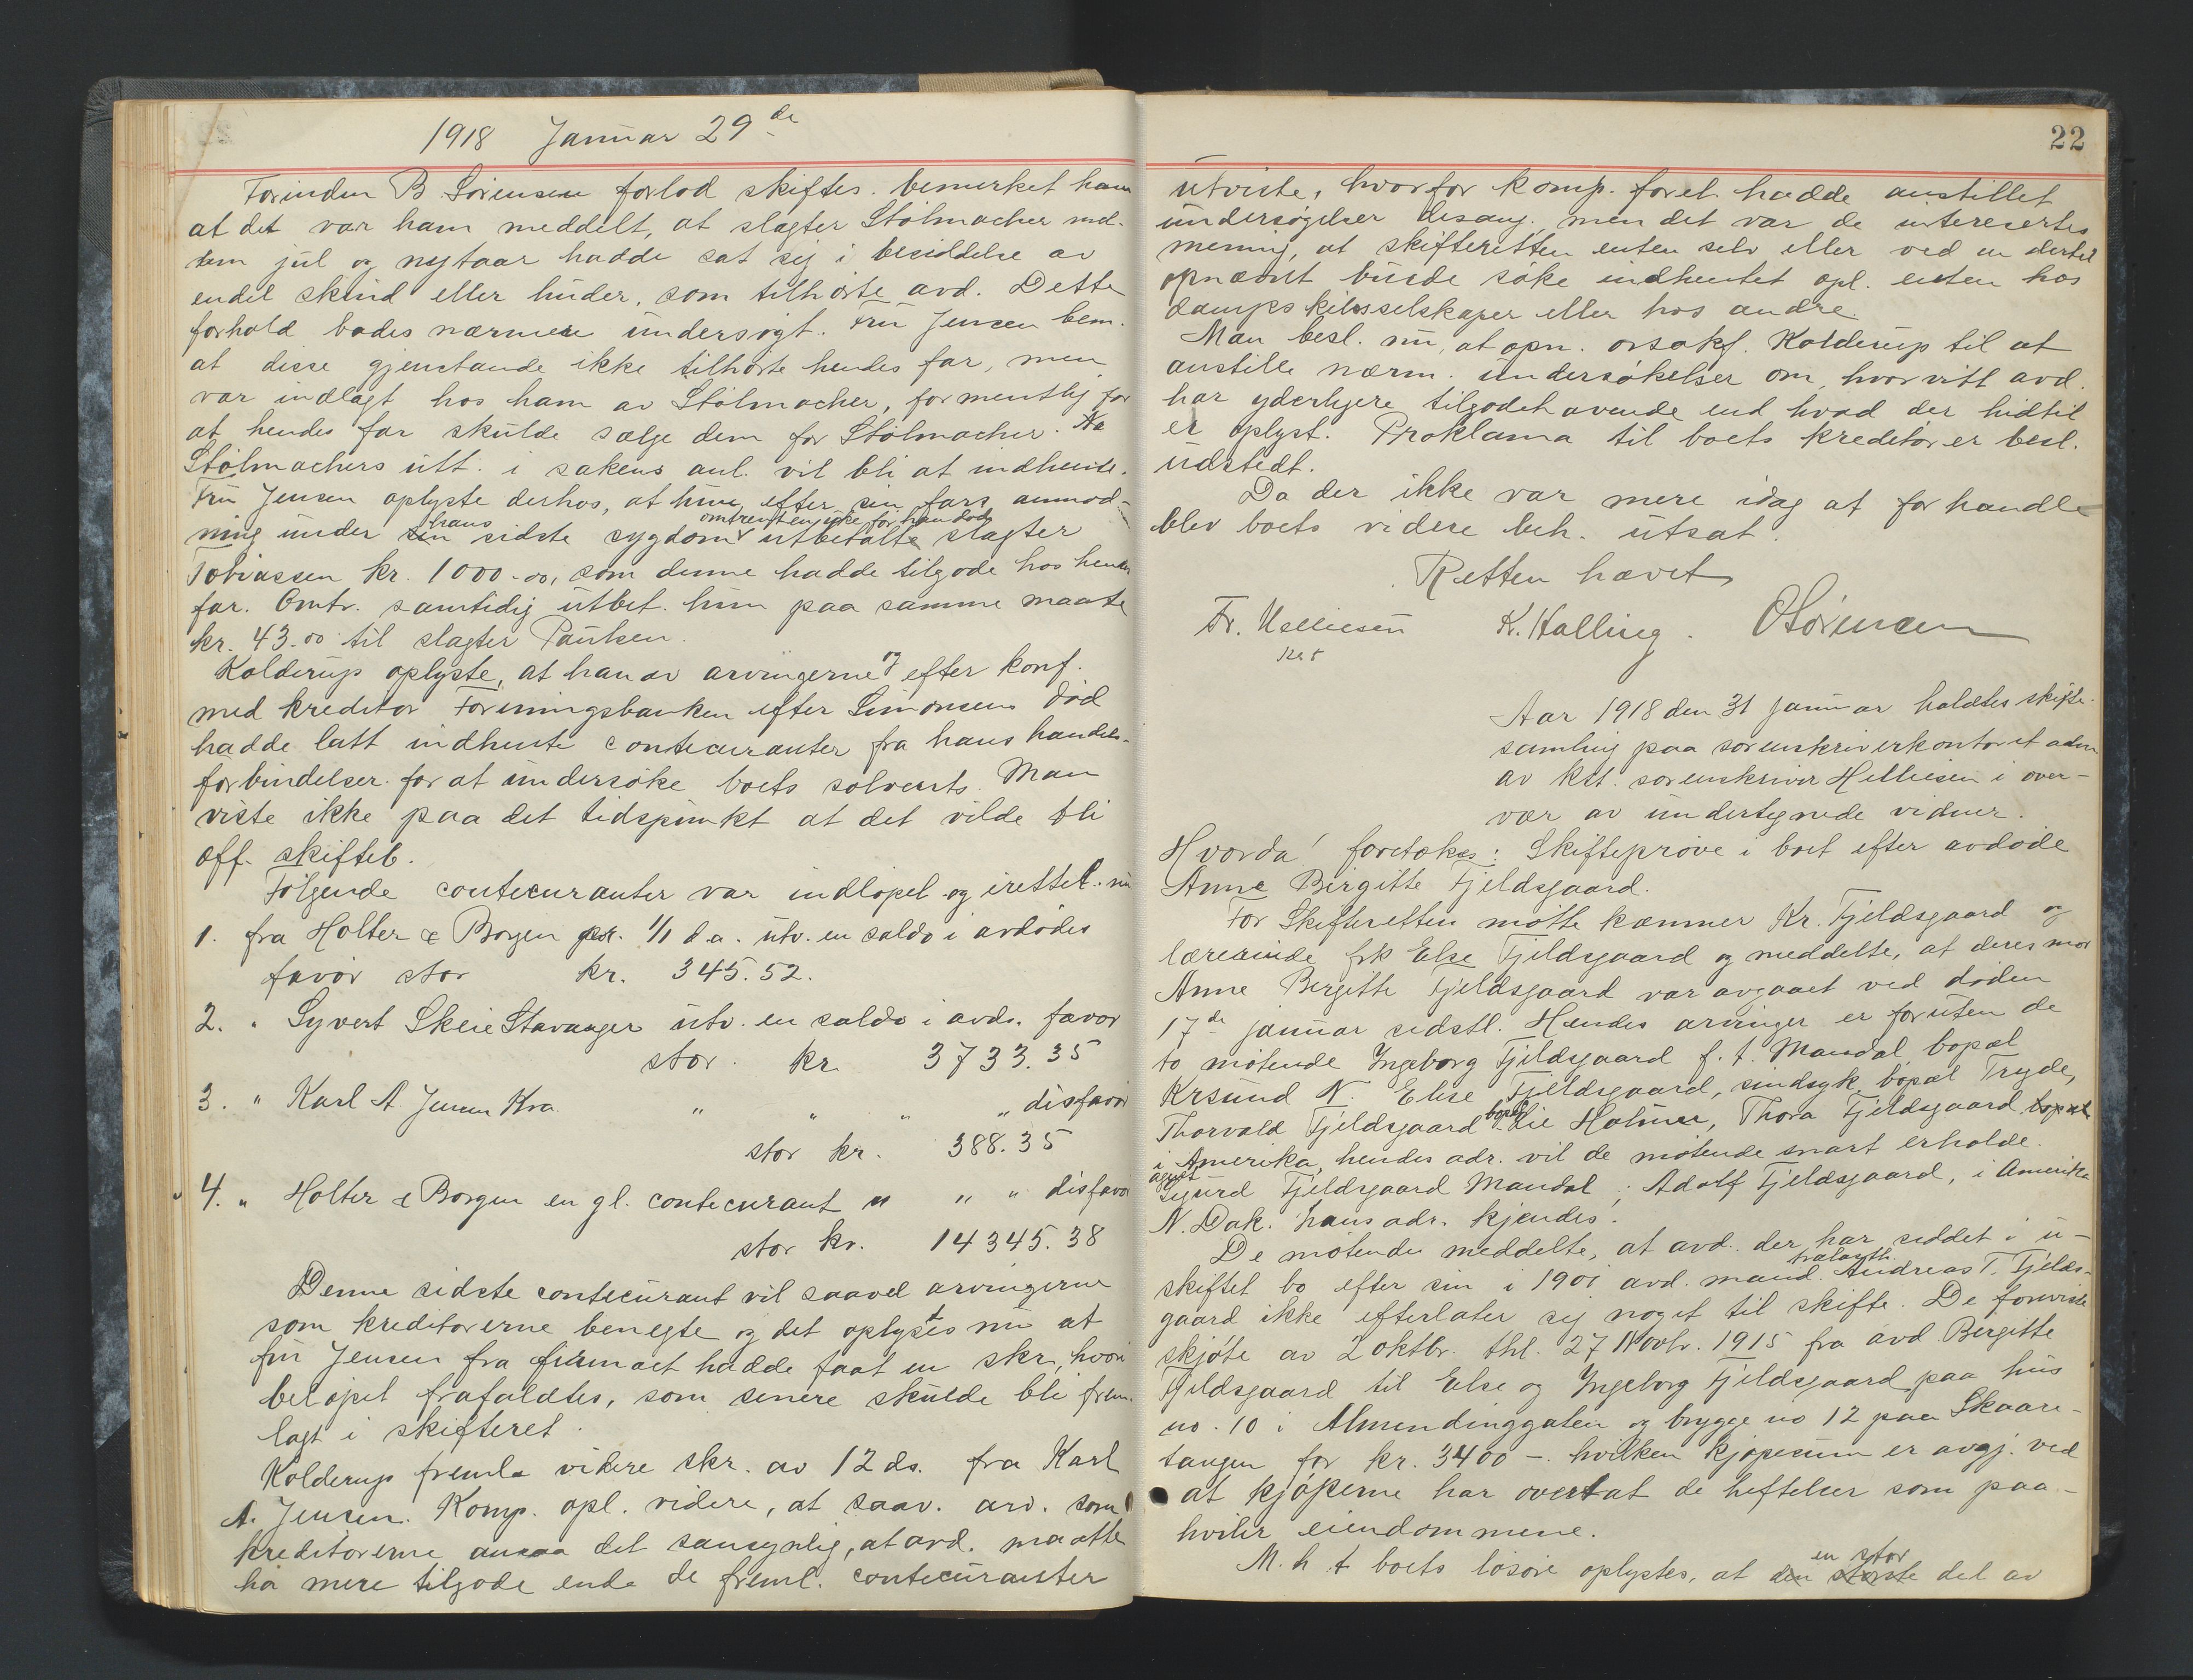 1918 Januar 29de
Forinden B. Sörensen forlod skiftes. bemerket han
at det var ham meddelt, at slagter Stölmacher mel-
lem jul og nytaar hadde sat sig i besiddelse av
endel skind eller huder, som tilhörte avd. Dette
forhold bades nærmere undersøgt. Fru Jensen bem.
at disse gjenstande ikke tilhörte hendes far, men
var indlagt hos ham av Stölmacher, formentlig for
at hendes far skulde sælge dem for Stölmacher.
Stölmachers utt. i sakens anl. vil bli at indhente.
Fru Jensen oplyste derhos, at hun efter sin fars anmod-
ning under sin hans sidste sygdom omtrent en uke før han döde utbetalte slagter
Tobiassen kr. 1000.00, som denne hadde tilgode hos hendes
far. Omtr. samtidig utbet. hun paa samme maate
kr. 43.00 til slagter Paulsen.
Kolderup oplyste, at han av arvingerne og efter konf.
med kreditor Foreningsbanken efter Simonsens död
hadde latt indhente contecuranter fra hans handels-
forbindelser for at undersöke boets solvents. Man
viste ikke paa det tidspunkt at det vilde bli
off. skifteb.
Fölgende contecuranter var indlöpet og irettel. nu
1. fra Holter & Borgen pr. 1/1 d.a. utv. en saldo i avdödes
favör stor kr. 345.52.
2. " Syvert Skeie Stavanger utv. en saldo i avds. favör
stor kr. 3733.35
3. " Karl A. Jensen Kra. " " " " disfavör
stor kr. 388.35
4. " Holter & Borgen en gl. contecurant " " " disfavör
stor kr. 14345.38
Denne sidste contecurant vil saavel arvingerne
som kreditorerne benegte og det oplystes nu at
fru Jensen fra firmaet hadde faat en skr, hvori
belöpet frafaldtes, som senere skulde bli frem-
lagt i skifteret.
Kolderup freml. videre skr. av 12 ds. fra Karl
A. Jensen. Komp. opl. videre, at saav. arv. som
kreditorerne ansaa det sansynlig, at avd. maatte
ha mere tilgode ende de freml. contecuranter
22
utviste, hvorfor komp. forel. hadde anstillet
undersøgelser desang. men det var de interesertes
mening, at skifteretten enten selv eller ved en dertil
opnævnt burde söke indhentet opl. enten hos
dampskibsselskaper eller hos andre.
Man besl. nu, at opn. orsakf. Kolderup til at
anstille nærm. undersökelser om, hvorvitt avd.
har yderligere tilgodehavende end hvad der hidtil
er oplyst. Proklama til boets kreditorer besl.
udstedt.
Da der ikke var mere idag at forhandle
blev boets videre beh. utsat.
Retten hævet
Fr. Helliesen K. Halling. O Sörensen
kst
Aar 1918 den 31 januar holdtes skifte-
samling paa sorenskriverkontoret adm.
av kst. sorenskriver Helliesen i over-
vær av undertegnede vidner.
Hvorda! foretokes: Skifteprøve i boet efter avdøde
Anne Birgitte Fjeldsgaard.
For Skifteretten møtte kæmner Kr. Fjeldsgaard og
lærerinde frk Else Fjeldsgaard og meddelte, at deres mor
Anne Bergitte Fjeldsgaard var avgaaet ved døden
17de januar sidstl. Hendes arvinger er foruten de
to møtende Ingeborg Fjeldsgaard f. t. Mandal, bopæl
Krsund N. Elise Fjeldsgaard, sindsyk, bopæl Tryde,
Thorvald Fjeldsgaard bopæl Lie Holme, Thora Fjeldsgaard bopæl
i Amerika, hendes adr. vil de møtende snart erholde.
Sigurd Fjeldsgaard Mandal; Adolf Fjeldsgaard, i Amerika
N. Dak. hans adr. kjendes.
De møtende meddelte, at avd. der har siddet i u-
skiftet bo efter sin i 1901 avd. mand Andreas T. Fjelds-
gaard ikke efterlater sig noget til skifte. De foreviste
skjøte av 2 oktbr. thl. 27 Novbr. 1915 fra avd Bergitte
Fjeldsgaard til Else og Ingeborg Fjeldsgaard paa hus
no. 10 i Almendinggaten og brygge no 12 paa Skaare-
tangen for kr. 3400 -. hvilken kjøpesum er avgj. ved
at kjøperne har overtat de heftelser som paa-
hviler eiendommene.
M. h. t boets løsøre oplystes, at den største en stor del av